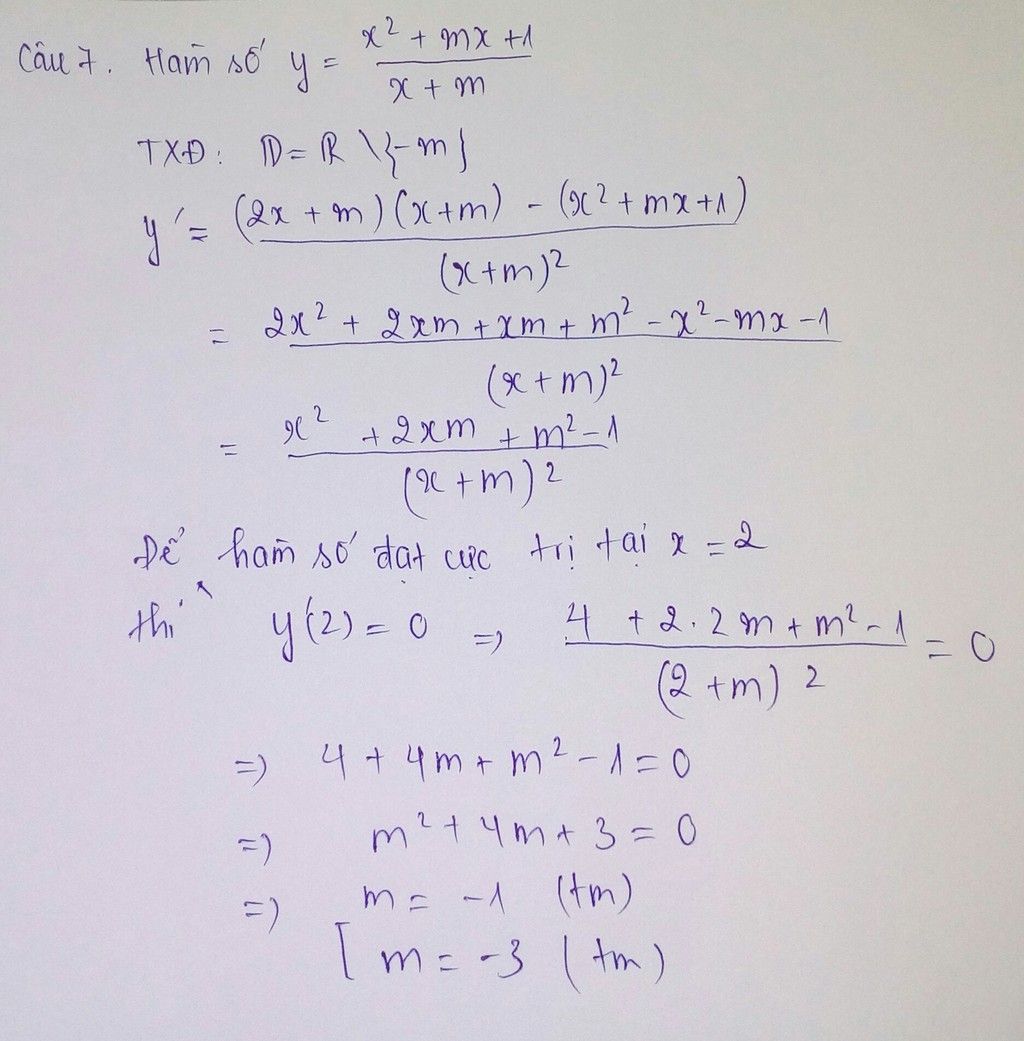 Câu 7. Hàm số y = x² + mx + 1 / x + m
TXĐ: D = R \ {-m}
y' = (2x + m)(x + m) - (x² + mx + 1) / (x + m)²
= 2x² + 2xm + xm + m² - x² - mx - 1 / (x + m)²
= x² + 2xm + m² - 1 / (x + m)²
Để hàm số đạt cực trị tại x = 2
thì y'(2) = 0 => 4 + 2.2m + m² - 1 / (2 + m)² = 0
=> 4 + 4m + m² - 1 = 0
=> m² + 4m + 3 = 0
=> m = -1 (tm)
[ m = -3 (tm)